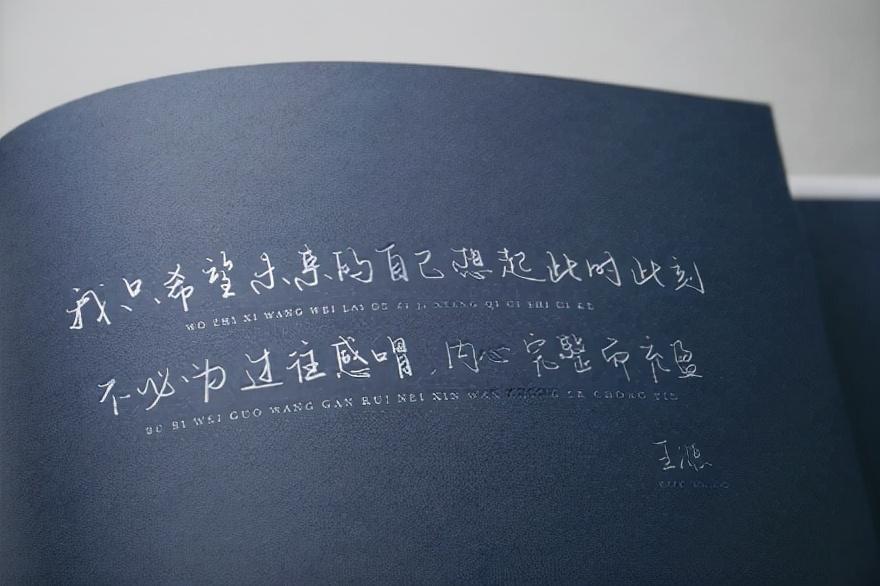 我只希望未来的自己想起此时此刻
WO ZHI XI WANG WEI LAI DE ZI JI XIANG QI CI SHI CI KE
不必为过往感喟,内心完整而充盈
BU BI WEI GUO WANG GAN KUI NEI XIN WAN ZHENG ER CHONG YIN
王